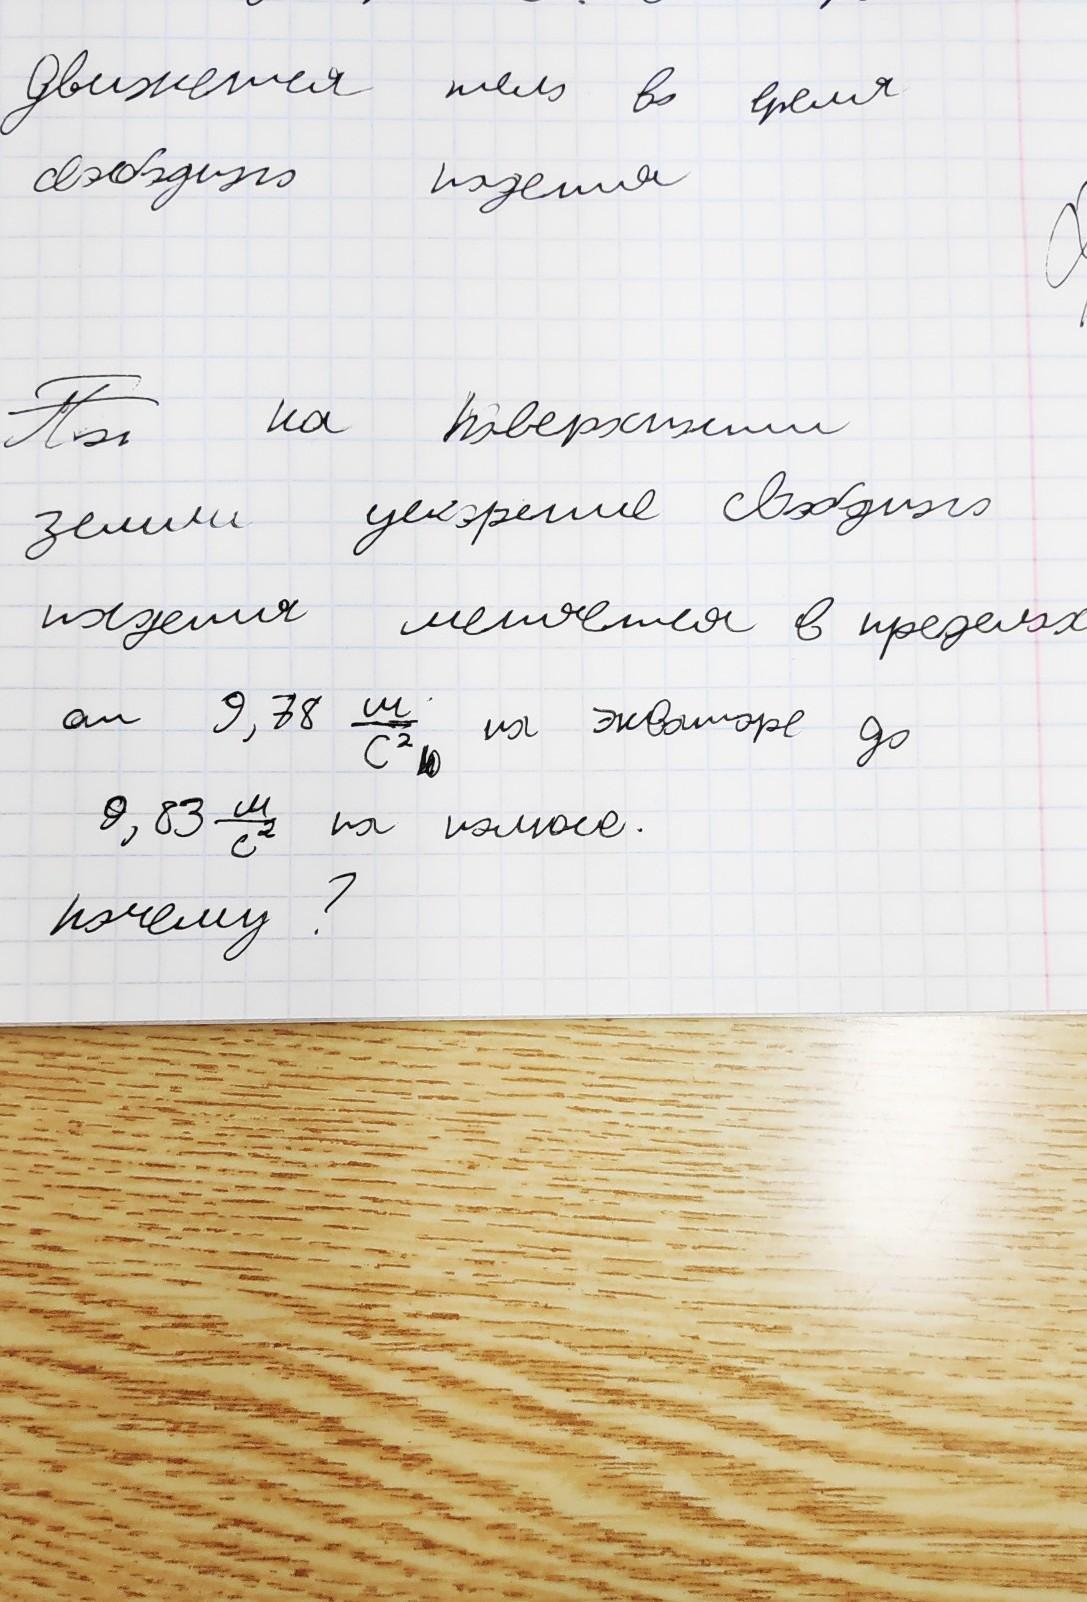 движется тело во время
свободного падения
На поверхности
земли ускорение свободного
падения меняется в пределах
от 9,78 м/с² на экваторе до
9,83 м/с² на полюсе.
почему?